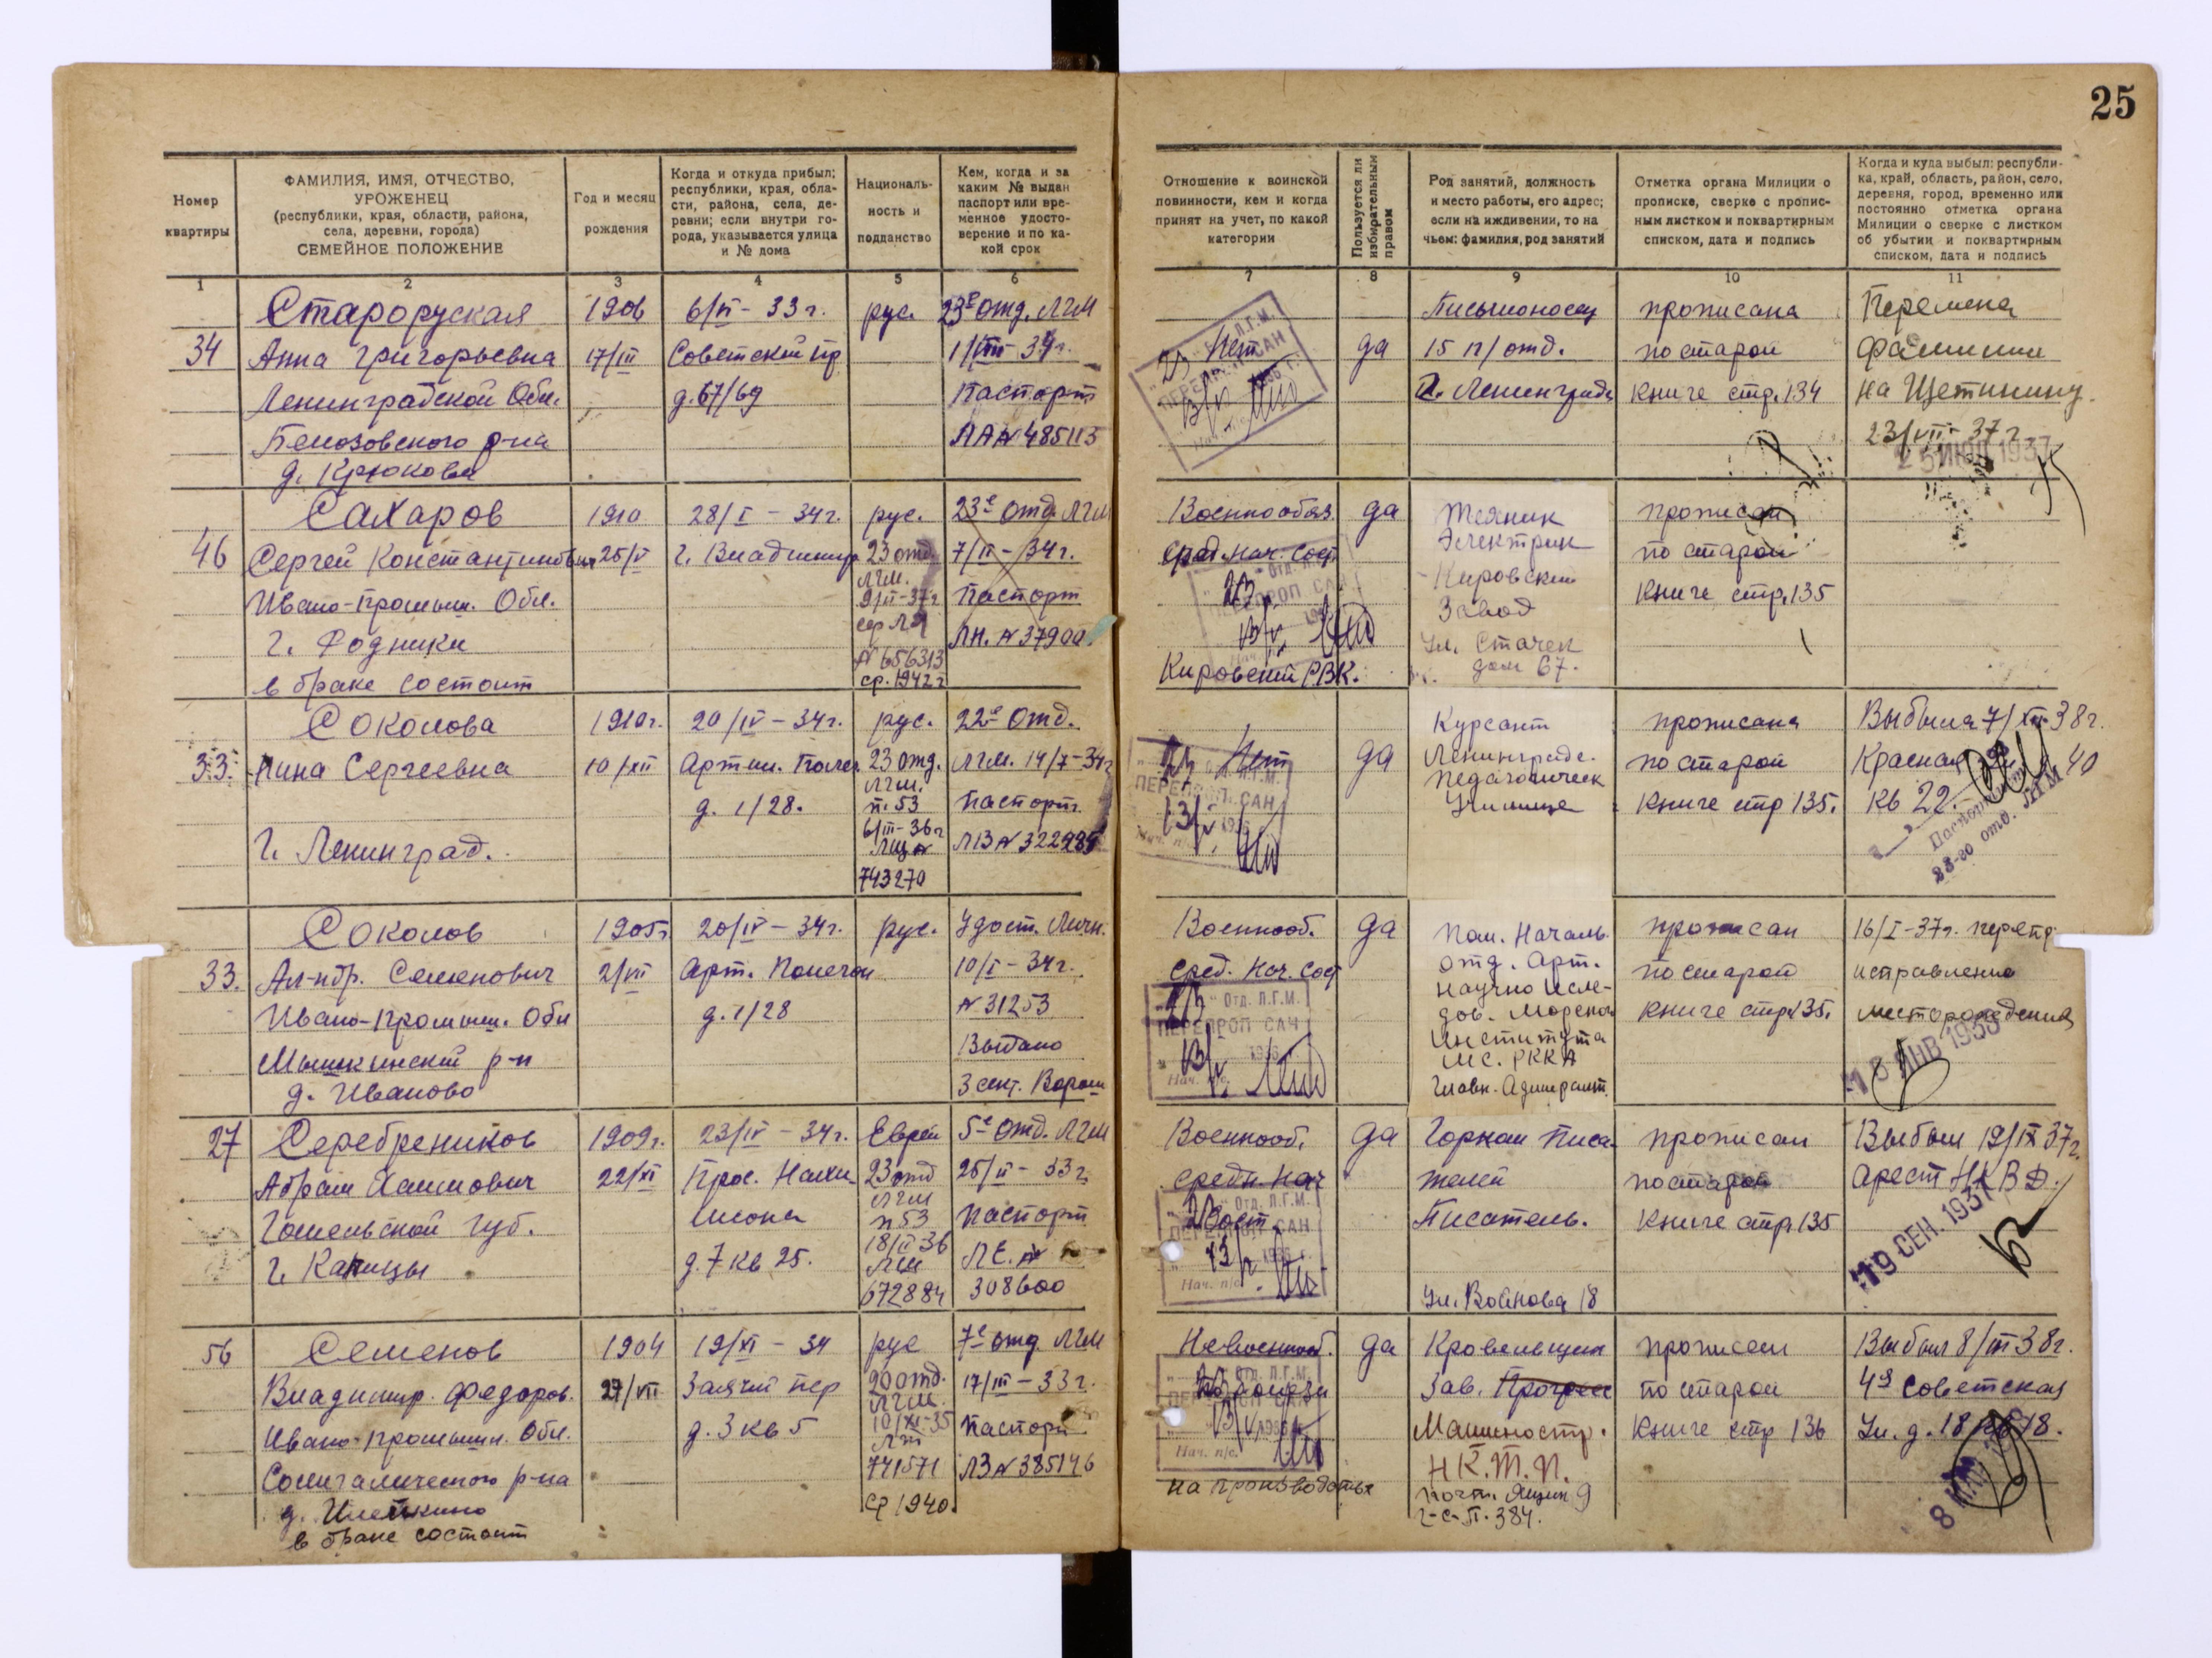 25
Номер
квартиры
ФАМИЛИЯ, ИМЯ, ОТЧЕСТВО,
УРОЖЕНЕЦ
(республики, края, области, района,
села, деревни, города)
СЕМЕЙНОЕ ПОЛОЖЕНИЕ
Год и месяц
рождения
Когда и откуда прибыл:
республики, края, обла-
сти, района, села, де-
ревни; если внутри го-
рода, указывается улица
и № дома
Националь-
ность и
подданство
Кем, когда и за
каким № выдан
паспорт или вре-
менное удосто-
верение и по ка-
кой срок
Отношение к воинской
повинности, кем и когда
принят на учет, по какой
категории
Пользуется ли
избирательным
правом
Род занятий, должность
и место работы, его адрес;
если на иждивении, то на
чьем: фамилия, род занятий
Отметка органа Милиции о
прописке, сверке с пропис-
ным листком и поквартирным
списком, дата и подпись
Когда и куда выбыл: республи-
ка, край, область, район, село,
деревня, город, временно или
постоянно отметка органа
Милиции о сверке с листком
об убытии и поквартирным
списком, дата и подпись
1 2 3 4 5 6 7 8 9 10 11
34
Старорусская
Анна Григорьевна
Ленинградской Обл.
Белозовского р-на
д. Крюкова
1906
17/III
6/VI - 33 г.
Советский пр
д. 67/69
рус.
23е отд. ЛГМ
1/VIII 34 г.
Паспорт
ЛА № 485115
Нет
да
Письмоносец
15 п/отд.
г. Ленинграда
прописана
по старой
книге стр. 134
Перемена
фамилии
на Щетинину.
23/VII - 37 г
25 ИЮЛ 1937
46
Сахаров
Сергей Константинович
Ивано-Промышл. Обл.
г. Родники
в браке состоит
1910
25/V
28/I - 34 г.
г. Владимир
рус.
23 отд
ЛГМ.
9/II-37 г
сер ЛЯ
№ 656313
ср. 1942 г
23е отд ЛГМ
7/II - 34 г.
Паспорт
ЛН. № 37900
Военнообяз.
сред. нач. сост.
Кировский РВК.
да
Техник
Электрик
Кировский
Завод
Ул. Стачек
дом 67.
прописан
по старой
книге стр. 135
33.
Соколова
Нина Сергеевна
г. Ленинград.
1910 г.
10/XII
20/IV - 34 г.
Артил. Полег
д. 1/28.
рус.
23 отд.
ЛГМ.
п. 53
6/III - 36 г
743270
22е отд.
ЛГМ. 14/X - 34 г
паспорт.
ЛВ № 322985
Нет
да
Курсант
Ленинградс.
Педагогическ
Училище
прописана
по старой
книге стр 135.
Выбыла 7/XII 38 г.
Красная 40
кв 22.
Паспортист
23-го отд. ЛГМ
33.
Соколов
Ал-ндр. Семенович
Ивано-Промыш. Обл
Мышкинский р-н
д. Иваново
1905 г
2/VII
20/IV - 34 г.
Арт. Полегон
д. 1/28
рус.
Удост. Личн.
10/I - 34 г.
№ 31253
Выдано
3 сект. Ворош
Военнооб.
сред. нач. сост
да
Пом. Началь.
отд. Арт.
научно Иссле-
дов. Морского
Института
МС. РККА
Главн. Адмиралт.
прописан
по старой
книге стр 135.
16/I - 37 г.
исправлено
месторождения
27
Серебреников
Абрам Хаимович
Гомельской губ.
г. Капицы
1909 г.
22/XI
23/IV - 34 г.
Прос. Нахи-
мсона
д. 7 кв 25.
Еврей
23 отд
ЛГМ
п 53
18/II 36
672884
5е отд. ЛГМ
25/II - 33 г.
паспорт
ЛЕ. №
308600
Военнооб.
средн. нач
сост.
да
Горком Писа-
телей
Писатель.
Ул. Воинова 18
прописан
по старой
книге стр 135
Выбыл 19/IX 37 г.
Арест НКВД.
19 СЕН. 1937
56
Семенов
Владимир. Федоров.
Ивано-промышл. Обл.
Солигаличского р-на
д. Илейкино
в браке состоит
1904
27/VII
19/XI - 34
Заячий пер
д. 3 кв 5
рус
20 отд.
ЛГМ.
10/XI-35
741571
Ср 1940.
7е отд. ЛГМ
17/III - 33 г.
Паспорт
ЛЗ № 385146
Невоеннооб.
по болезни
на производстве
да
Кровельщик
Зав. Прогресс
Машиностр.
Н.К.Т.П.
почт. Ящик 9
г-с-п. 384.
прописан
по старой
книге стр 136
Выбыл 8/III 38 г.
4я Советская
Ул. д. 18 кв 18.